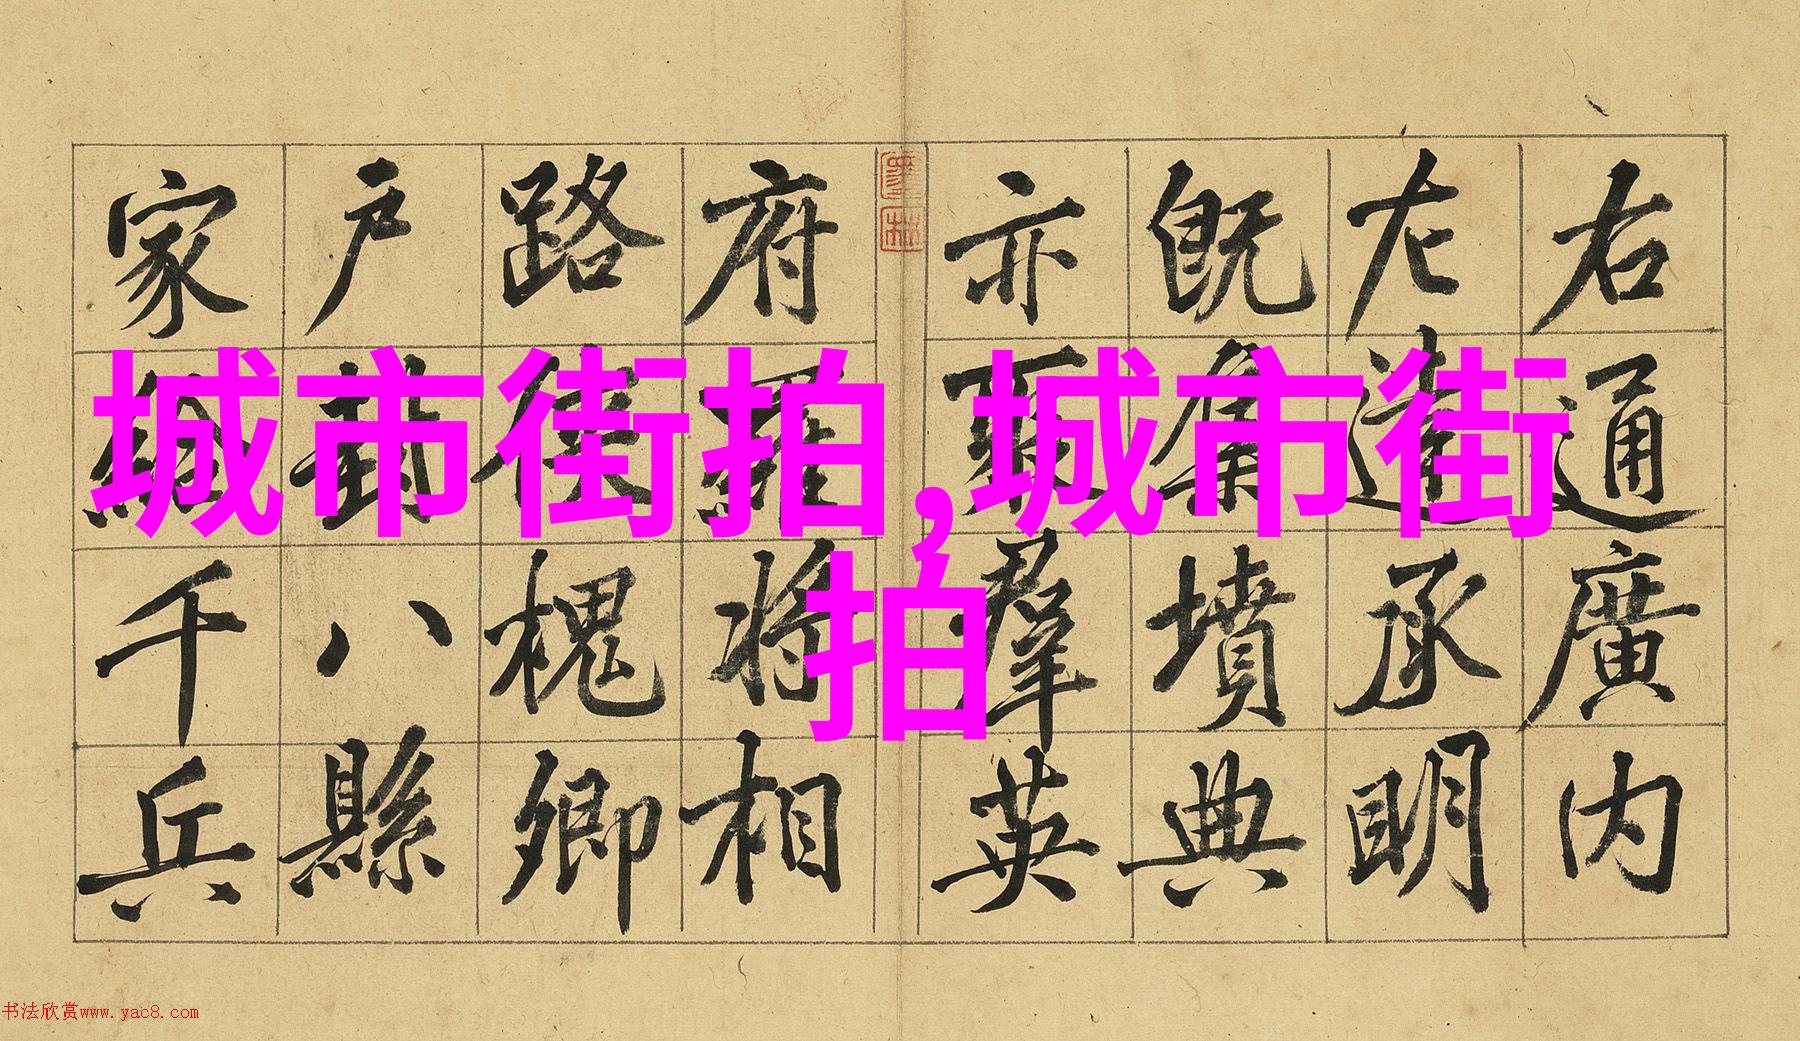 右通廣内
左達承明
既集墳典
亦聚羣英
府羅將相
路俠槐卿
戶封八縣
家給千兵
城市街拍,城市街
拍
书法欣赏www.yac8.com